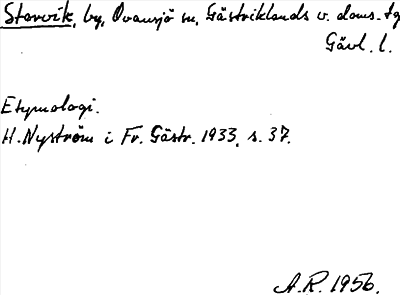 Storvik, by, Ovansjö sn, Gästriklands v. doms. tg
Gävl. l.
Etymologi.
H. Nyström i Fr. Gästr. 1933, s. 37.
A.R. 1956.